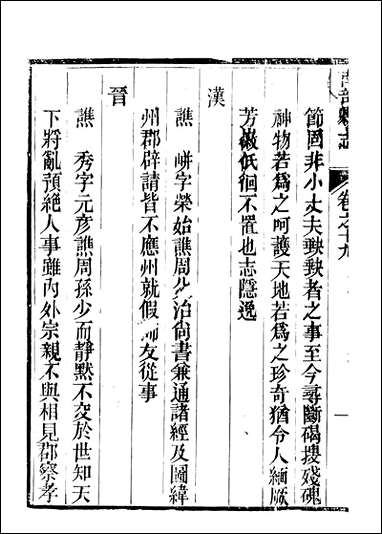 南部縣志
卷之十九
一
節固非小丈夫鞅鞅者之事至今尋斷碣搜殘碑
神物若爲之呵護天地若爲之珍奇猶令人緬厥
芳徽低徊不置也志隱逸
漢
譙 𡸫字榮始譙周父治尚書兼通諸經及圖緯
州郡辟請皆不應州就假師友從事
晉
譙 秀字元彥譙周孫少而靜默不交於世知天
下將亂預絕人事雖內外宗親不與相見郡察孝